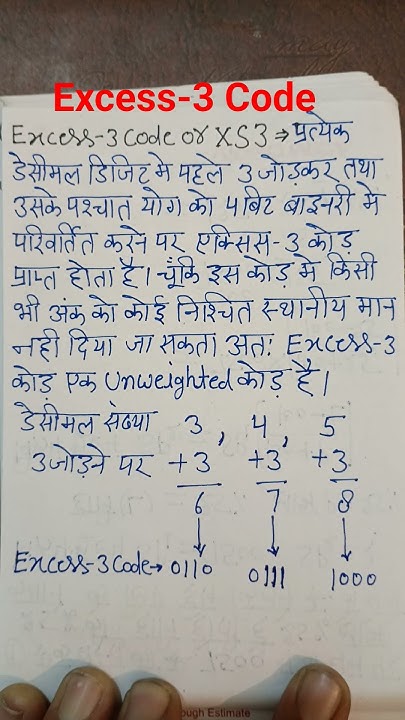 Excess-3 Code
Excess-3 Code or XS3 → प्रत्येक
डेसीमल डिजिट मे पहले 3 जोड़कर तथा
उसके पश्चात योग को 4 बिट बाइनरी मे
परिवर्तित करने पर एक्सिस-3 कोड
प्राप्त होता है। चूँकि इस कोड़ मे किसी
भी अंक को कोई निश्चित स्थानीय मान
नही दिया जा सकता अतः Excess-3
कोड़ एक Unweighted कोड़ है।
डेसीमल संख्या 3 , 4 , 5
3 जोड़ने पर +3 +3 +3
6 7 8
Excess-3 Code → 0110 0111 1000
ough Estimate